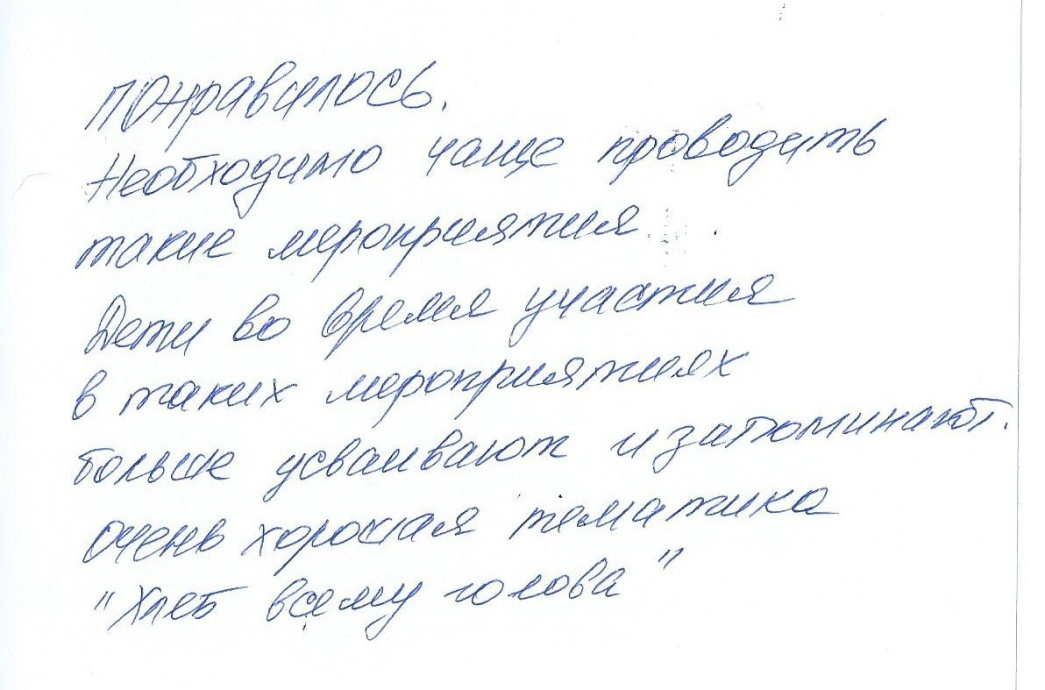 Понравилось.
Необходимо чаще проводить
такие мероприятия.
Дети во время участия
в таких мероприятиях
больше усваивают и запоминают.
Очень хорошая тематика
"Хлеб всему голова"